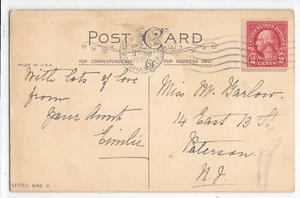 POST CARD
FOR CORRESPONDENCE
FOR ADDRESS ONLY
MADE IN U.S.A.
2 CENTS 2
With lots of love
from
Your Aunt
Emilie
Miss M. Garlow.
14 East 13 St.
Paterson
N. J.